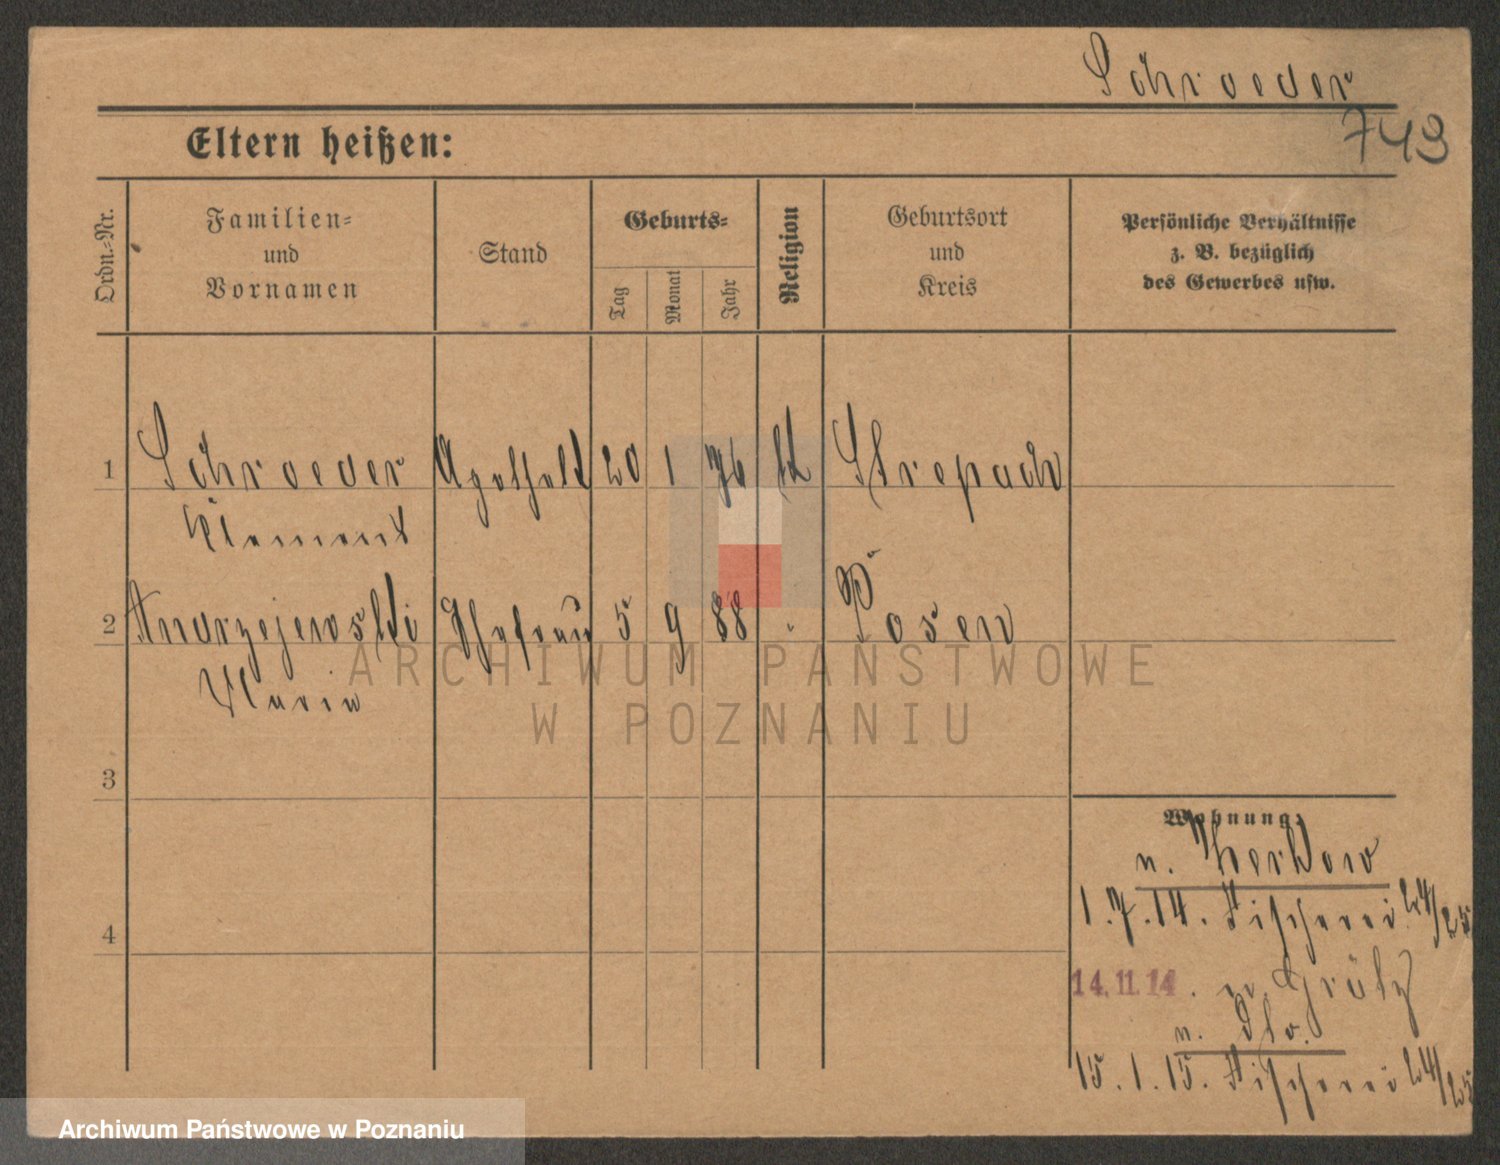 Schroeder
743
Eltern heißen:
Ordn.-Nr.
Familien-
und
Vornamen
Stand
Geburts-
Tag
Monat
Jahr
Religion
Geburtsort
und
Kreis
Persönliche Verhältnisse
z. B. bezüglich
des Gewerbes usw.
1 Schroeder 20 1 76
Klemens
2 Andrzejewski Ehefrau 5 9 88 Posen
Maria
3
4
ARCHIWUM PAŃSTWOWE
W POZNANIU
Wohnung:
1.7.14. Fischerei 24/25
14.11.14. n. Grätz
v. dto.
15.1.15. Fischerei 24/25
Archiwum Państwowe w Poznaniu